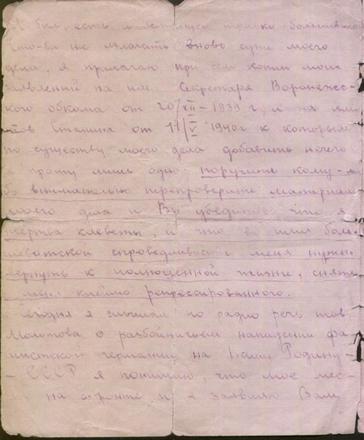 я был, есть и останусь только большевиком
что-ва не излагать вновь сути моего
дела, я прилагаю при сем копии моих
заявлений на имя Секретаря Воронежс-
кого обкома от 20/VII-1939 г. и на имя
тов Сталина от 11/V 1940 г к которым
по существу моего дела добавить нечего
прошу лишь одно: поручите кому-л
внимательно перепроверить материалы
моего дела и Вы убедитесь что я
жертва клеветы, и что во имя боль-
шевитской справедливости меня нужно
вернуть к полноценной жизни, снять
с меня клеймо репрессированного.
Сегодня я слышал по радио речь тов
Молотова о разбойничьем нападении фа-
шистской германии на нашу Родину-
- СССР я понимаю, что мое мес-
на фронте и я заявляю Вам